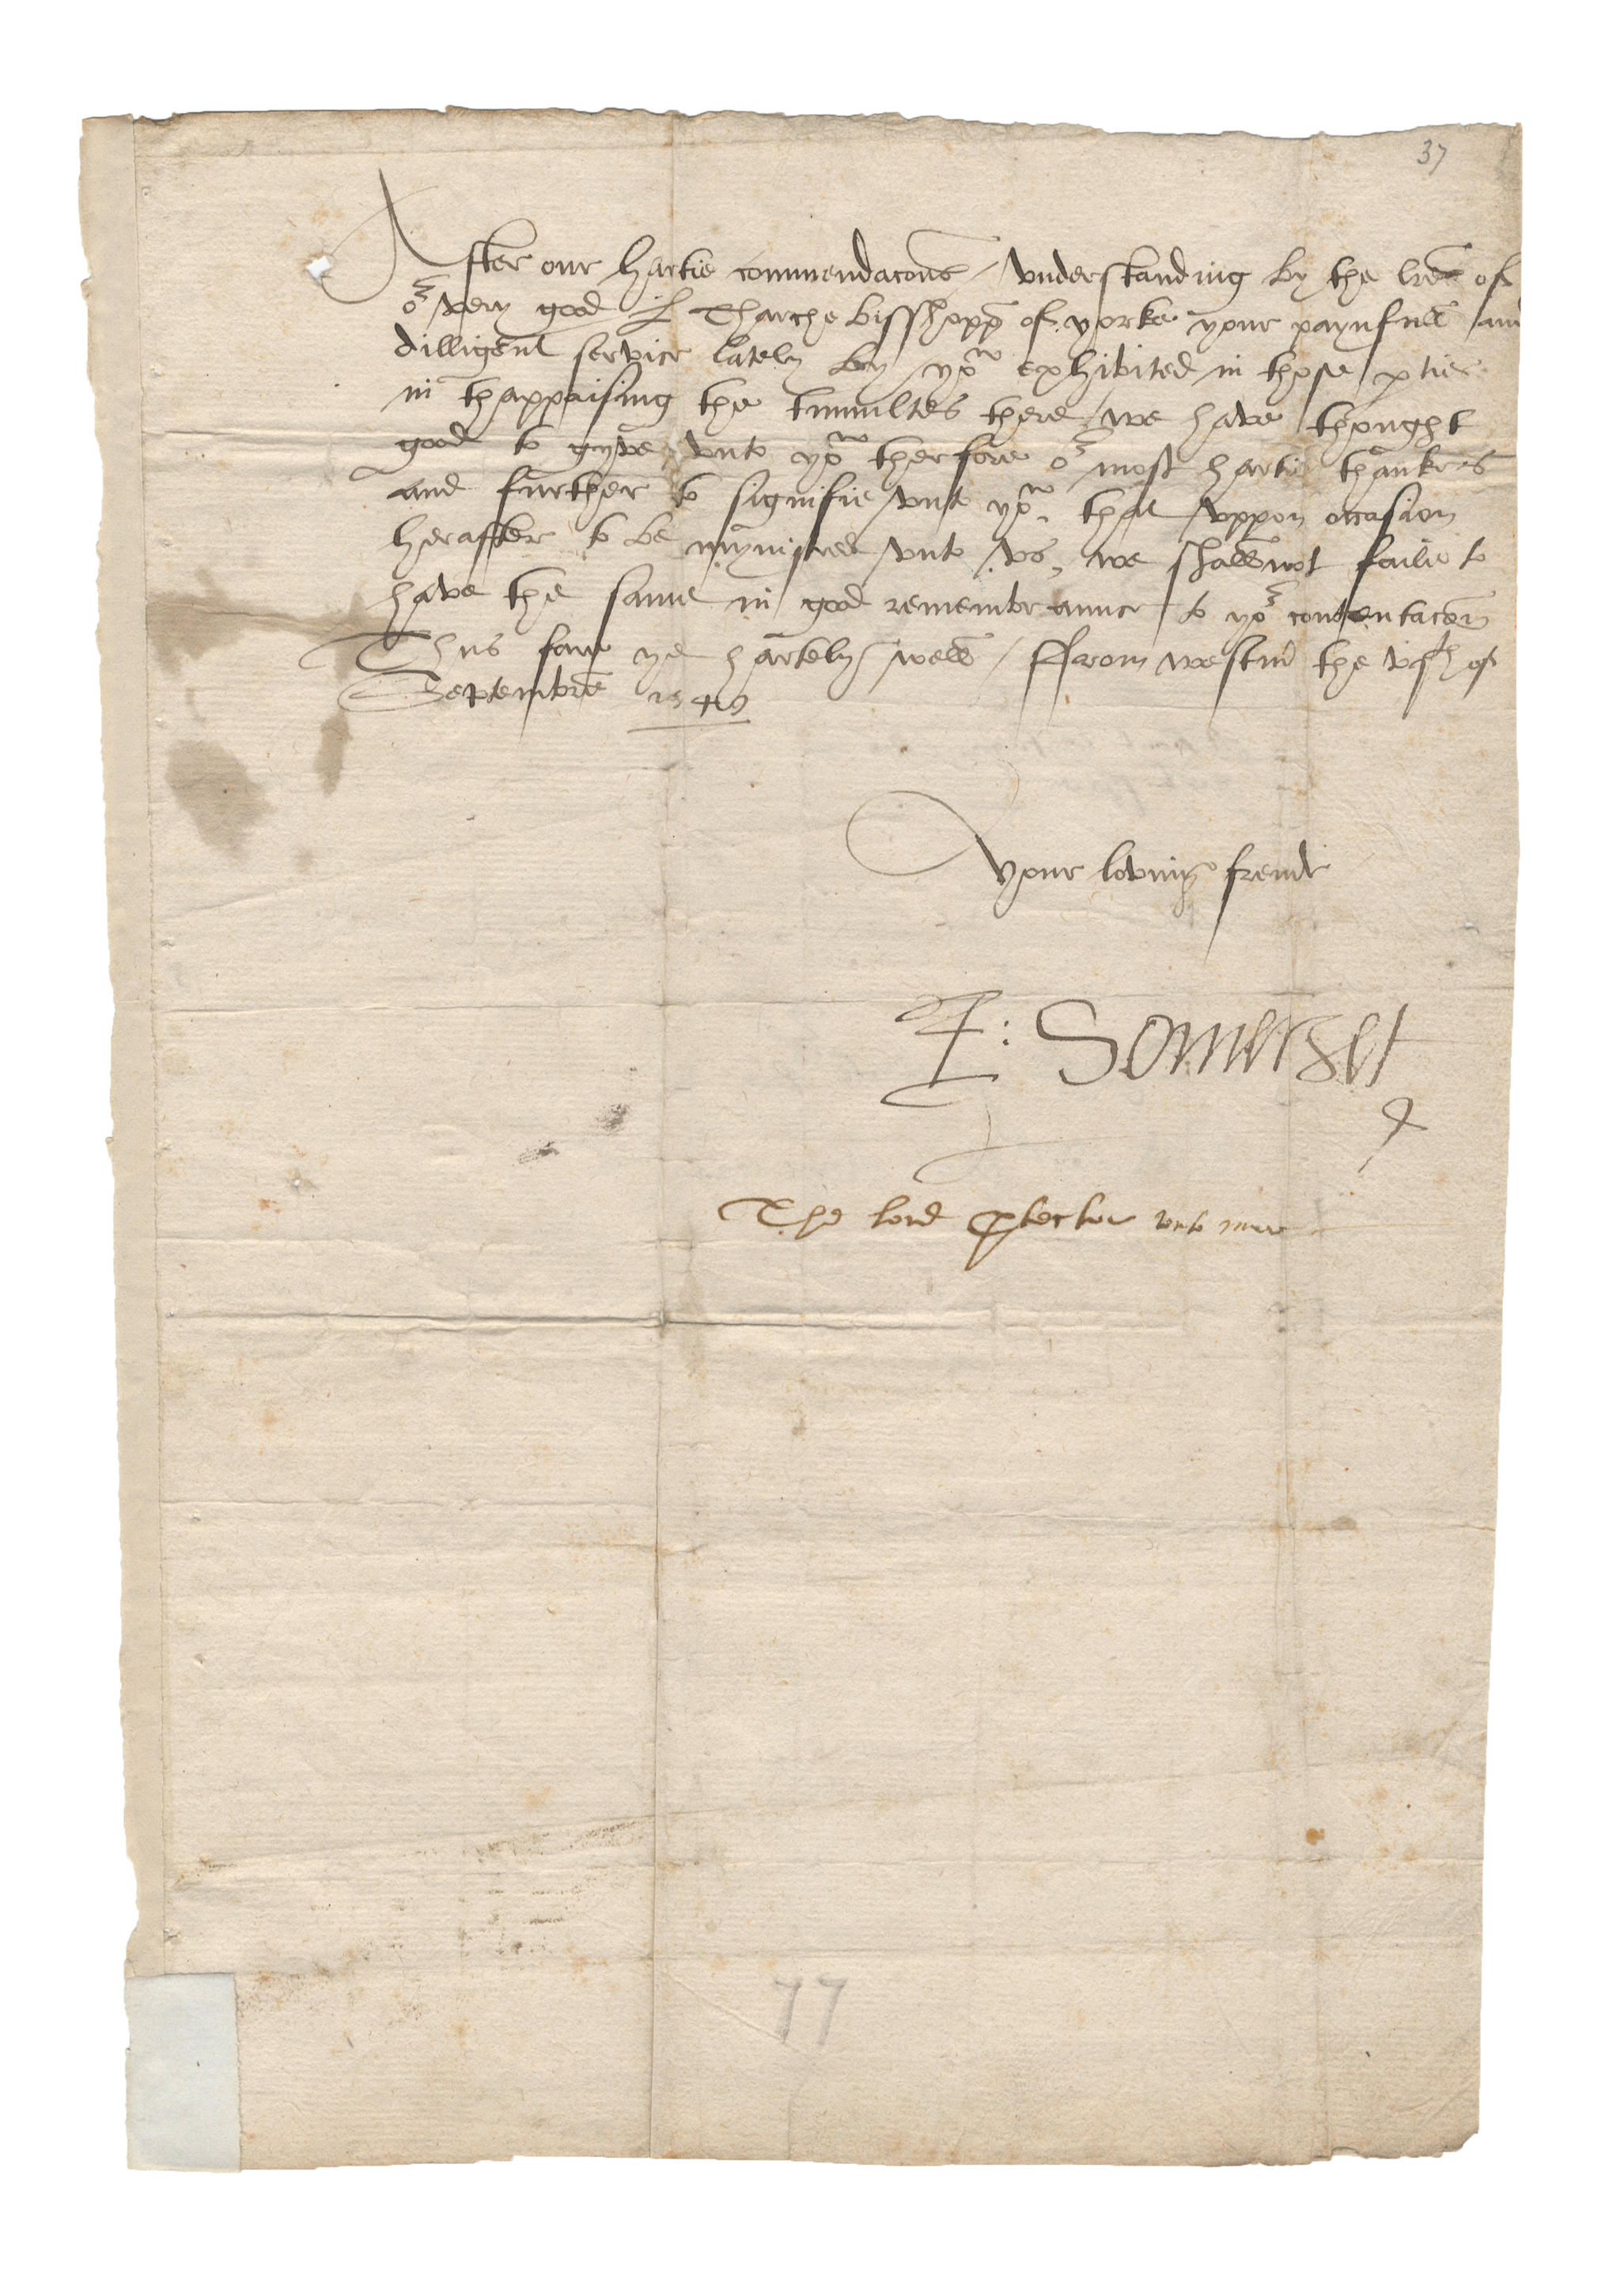 37
After our hartie commendacons / vnderstanding by the lres of
or very good L Tharchebisshopp of yorke your paynfull and
dilligent service lately by you exhibited in those pties
in thappaising the tumultes there / we have thought
good to gyve vnto you therfore or most hartie thankes
and further to signifie vnto you, that vppon occasion
herafter to be mynistred vnto vs, we shall not faile to
have the same in good remembraunce to yor contentacon
Thus fare ye hartely well / ffrom westm the of
Septembre 1549
Your loving frende
E: Somerset
The lord ptector vnto mee
77